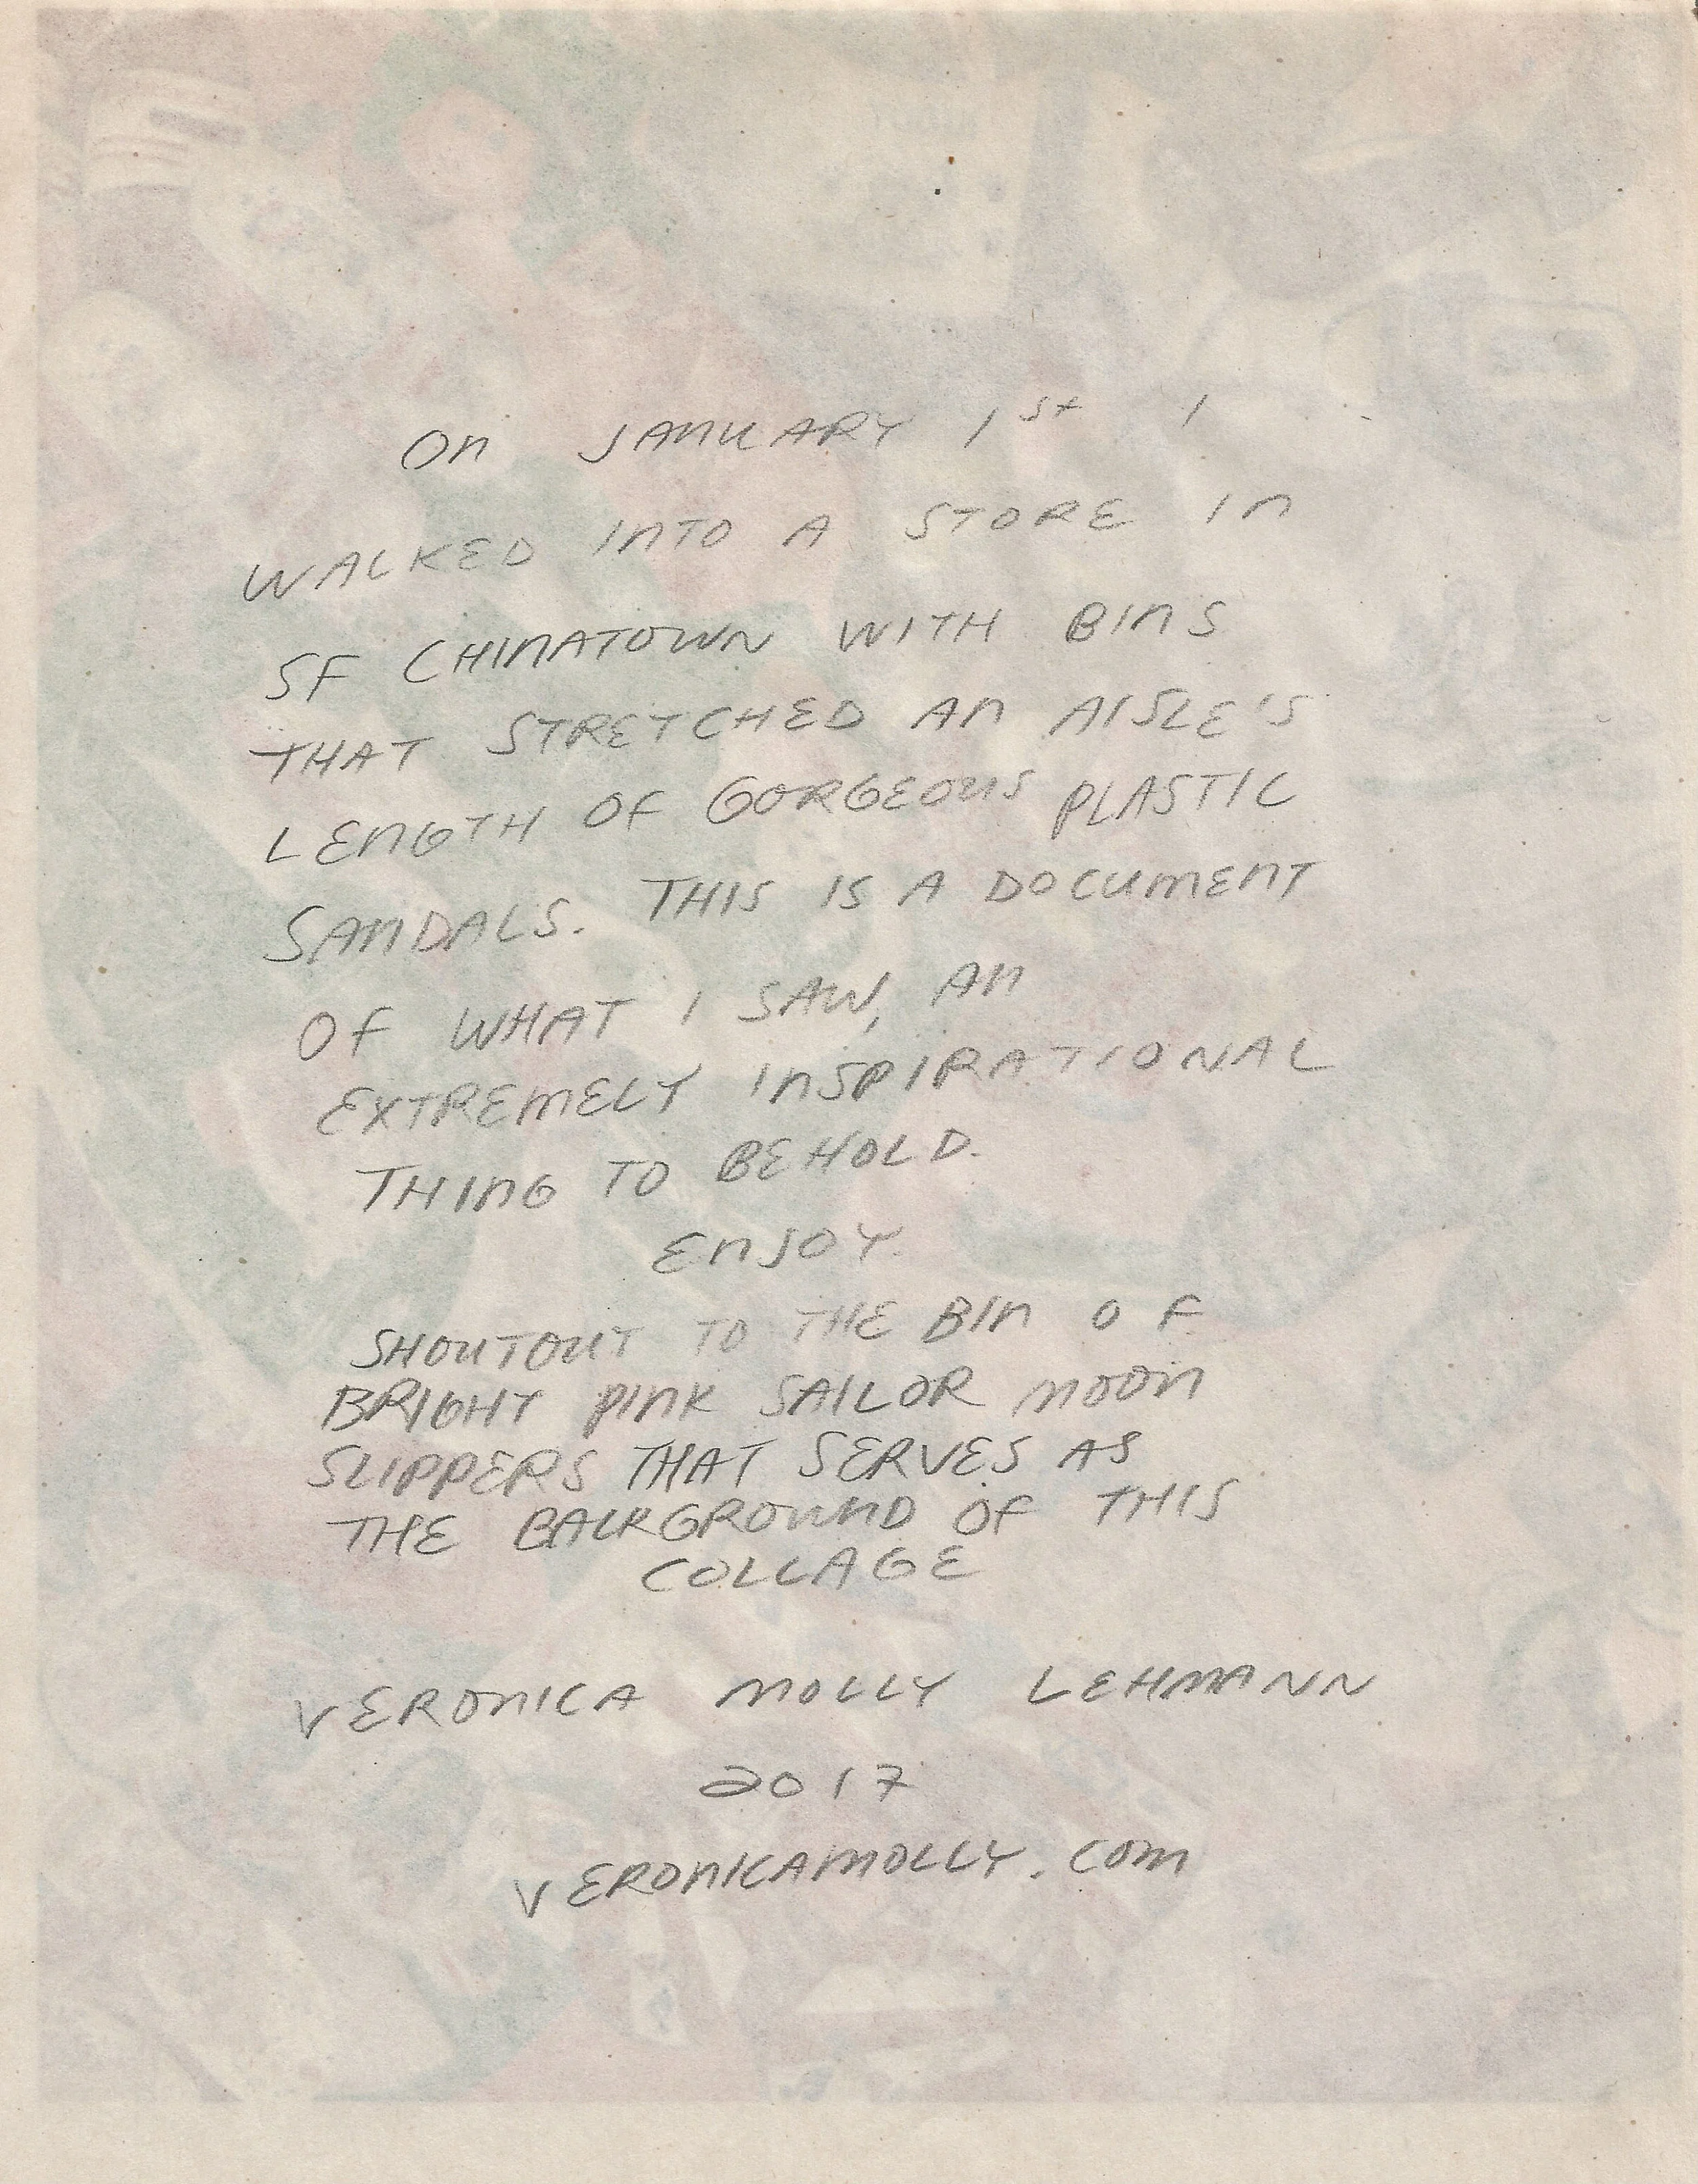 On JANUARY 1st I
WALKED INTO A STORE IN
SF CHINATOWN WITH BINS
THAT STRETCHED AN AISLE'S
LENGTH OF GORGEOUS PLASTIC
SANDALS. THIS IS A DOCUMENT
OF WHAT I SAW, AN
EXTREMELY INSPIRATIONAL
THING TO BEHOLD.
ENJOY.
SHOUTOUT TO THE BIN OF
BRIGHT PINK SAILOR MOON
SLIPPERS THAT SERVES AS
THE BACKGROUND OF THIS
COLLAGE
VERONICA MOLLY LEHMANN
2017
VERONICAMOLLY.COM